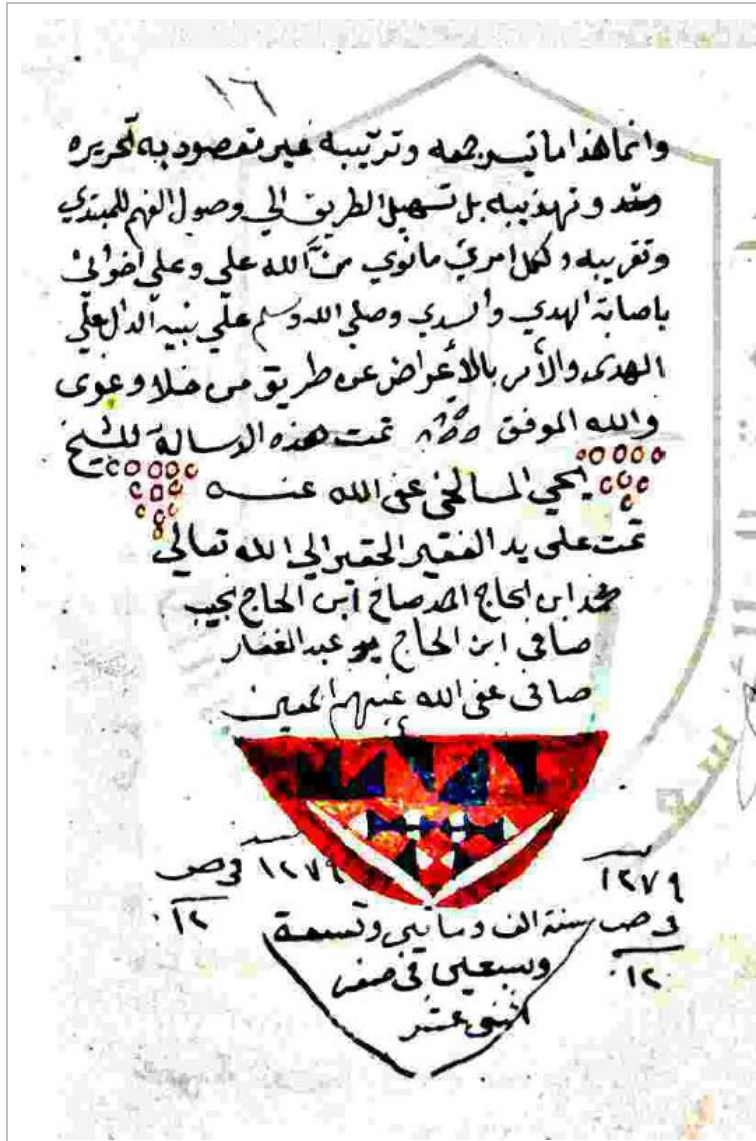 ١٦
وانما هذا ما تيسر جمعه وترتيبه غير مقصود به تحريره
وتهذيبه بل تسهيل الطريق الي وصول الفهم للمبتدي
وتقريبه ولكل امرئ مانوي منَّ الله علي وعلي اخواني
باصابة الهدي والسدي وصلي الله وسلم علي نبيه الدال علي
الهدى والأمر بالأعراض عن طريق من ضلا وغوى
والله الموفق تمت هذه الرسالة للشيخ
يحيي المسالخي عفى الله عنه
تمت على يد الفقير الحقير الي الله تعالي
محمد ابن الحاج احمد صافي ابن الحاج نجيب
صافي ابن الحاج عبد الغفار
صافي عفى الله عنهم اجمعين
١٢٧٩ في ص ١٢
١٢٧٩ في ص ١٢
سنة الف وماتين وتسعة
وسبعين في صفر
اثني عشر